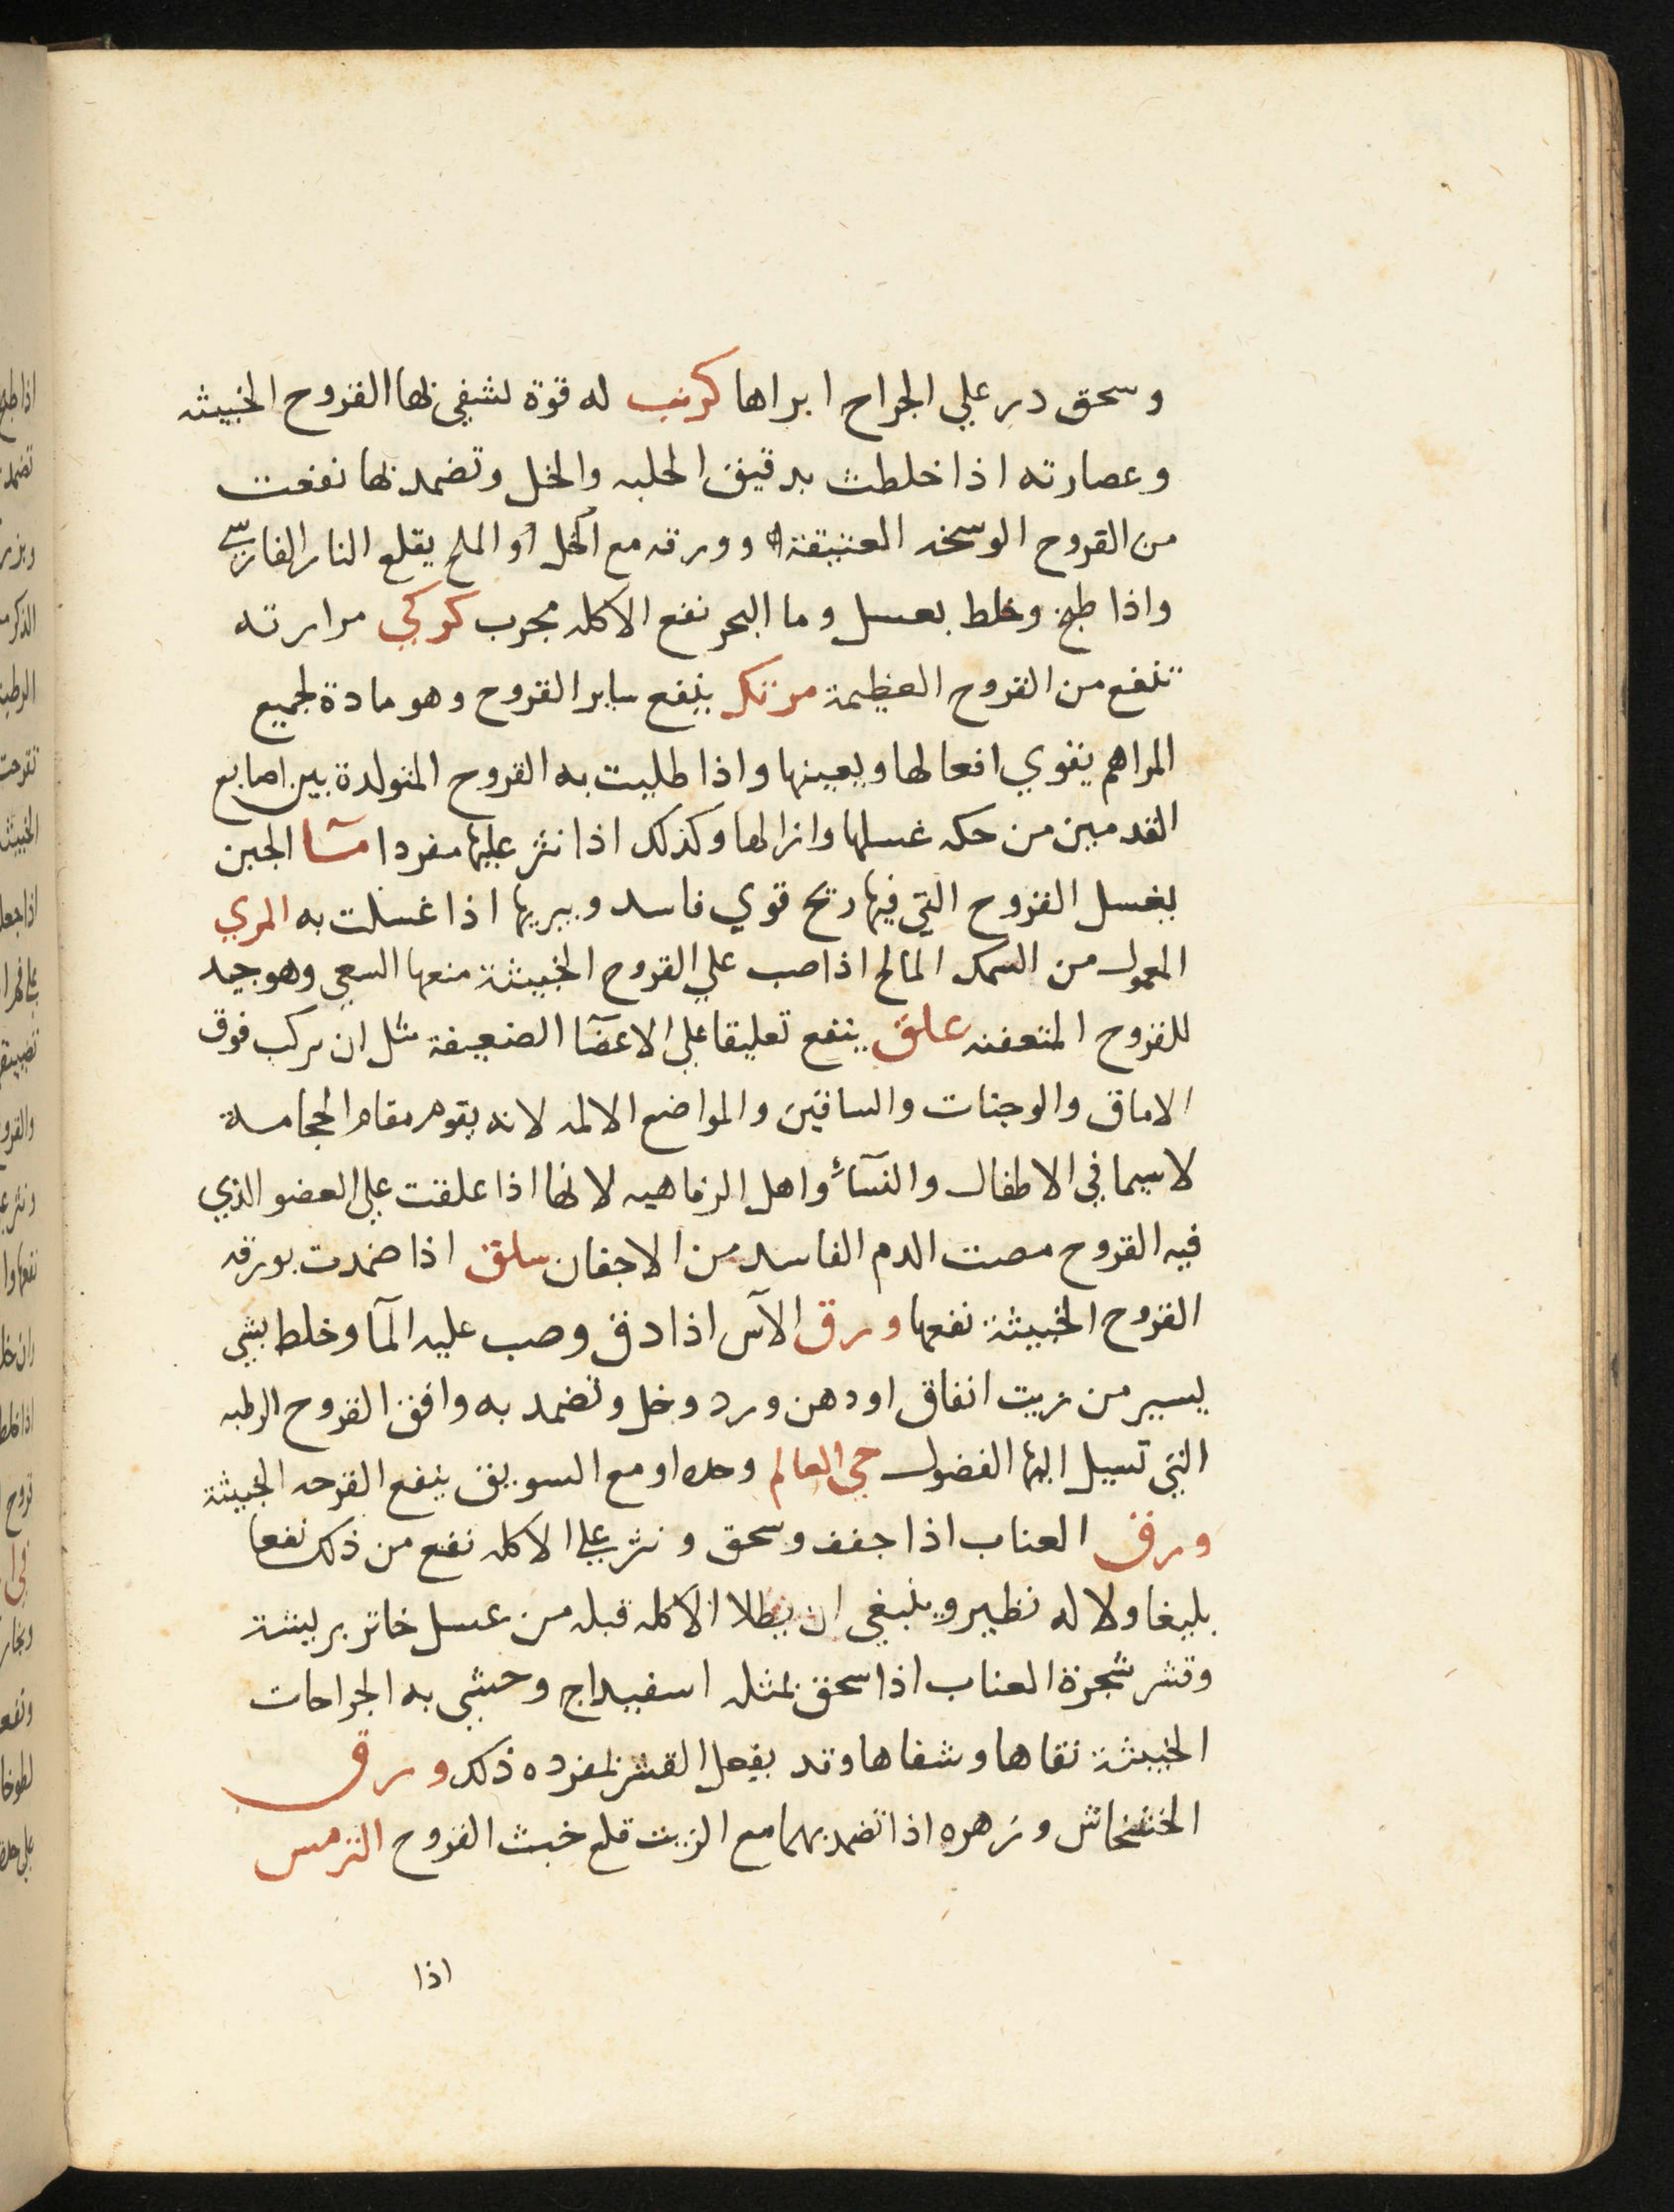 وسحق در علي الجراح ابراها كرنب له قوة تشفي بها القروح الخبيثه
وعصارته اذا خلطت بدقيق الحلبه والخل وتضمد بها نفعت
من القروح الوسخه العتيقة وورقه مع الخل أو الملح يقلع النار الفارسي
واذا طبخ وخلط بعسل وما البحر نفع الاكله مجرب كركي مرارته
تنفع من القروح العظيمة مرتك ينفع ساير القروح وهو مادة لجميع
المراهم يقوي افعالها ويعينها واذا طليت به القروح المتولدة بين اصابع
القدمين من حكه غسلها وازالها وكذلك اذا نثر عليها مفردا مآ الجبن
يغسل القروح التي فيها ريح قوي فاسد ويبريها اذا غسلت به المري
المعمول من السمك المالح اذا صب علي القروح الخبيثة منعها السعي وهو جيد
للقروح المتعفنه علق ينفع تعليقا علي الاعضآ الضعيفة مثل ان يركب فوق
الاماق والوجنات والساقين والمواضع الالمه لانه يقوم مقام الحجامة
لا سيما في الاطفال والنسآء واهل الرفاهيه لانها اذا علقت علي العضو الذي
فيه القروح مصت الدم الفاسد من الاجفان سلق اذا ضمدت بورقه
القروح الخبيثة نفعها ورق الآس اذا دق وصب عليه المآ وخلط بشي
يسير من زيت انفاق او دهن ورد وخل وتضمد به وافق القروح الرطبه
التي تسيل اليها الفضول حي العالم وحده او مع السويق ينفع القرحه الخبيثة
ورق العناب اذا جفف وسحق ونثر علي الاكله نفع من ذلك نفعا
بليغا ولا له نظير وينبغي ان يطلا الاكله قبله من عسل خاثر بريشة
وقشر شجرة العناب اذا سحق بمثله اسفيداج وحشي به الجراحات
الخبيثة نقاها وشفاها وقد يفعل القشر بمفرده ذلك ورق
الخشخاش وزهره اذا تضمد بهما مع الزيت قلع خبث القروح الترمس
اذا